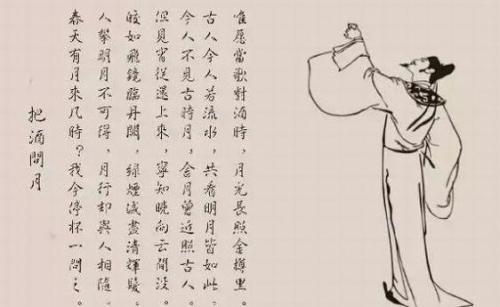 把酒問月
春天有月來几時？我今停杯一問之。
人攀明月不可得，月行却與人相隨。
皎如飛鏡臨丹闕，綠煙滅盡清輝
見宵從上來，寧知曉向云間沒。
今人不見古時月，月曾近照古人。
古人今人若流水，共看明月皆如此，
唯愿當歌對酒時，月光長照金樽里。